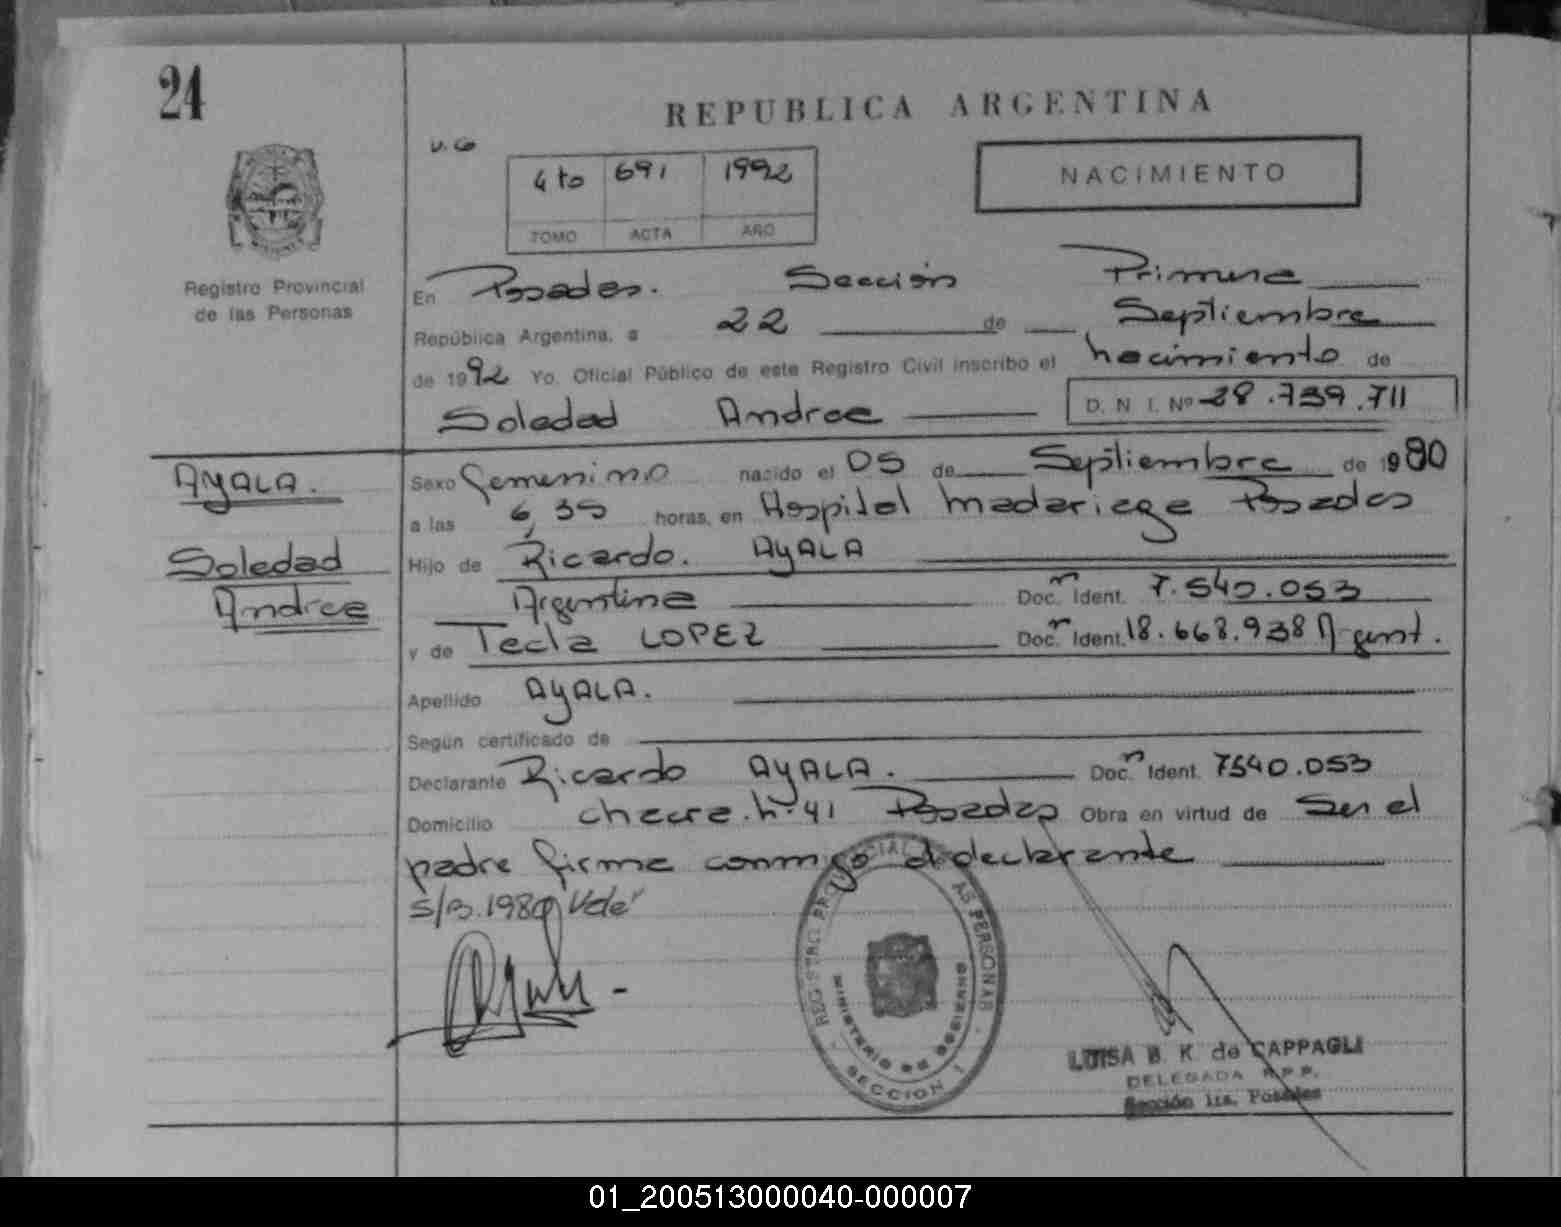 24
REPUBLICA ARGENTINA
4to 691 1992
TOMO ACTA AÑO
NACIMIENTO
Registro Provincial
de las Personas
En Posadas. Sección Primera
República Argentina, a 22 de Septiembre
de 1992 Yo. Oficial Público de este Registro Civil inscribo el nacimiento de
Soledad Andrea D. N I. Nº 28.739.711
AYALA.
Sexo femenino nacido el 05 de Septiembre de 1980
a las 6,35 horas, en Hospital Madariaga Posadas
Soledad
Andrea
Hijo de Ricardo. AYALA
Argentina Doc. Ident. 7.540.053
y de Tecla LOPEZ Doc. Ident. 18.668.938 Argent.
Apellido AYALA.
Según certificado de
Declarante Ricardo AYALA. Doc. Ident. 7540.053
Domicilio chacra. Nº 41 Posadas Obra en virtud de Ser el
padre firma conmigo el declarante
S/B. 1980 Vale
REGISTRO PROVINCIAL AS PERSONAR
MINISTERIO DE GOBIERNO
SECCION 1
LUISA B. K. de CAPPAGLI
DELEGADA R.P.P.
Sección 1ra. Posadas
01_200513000040-000007